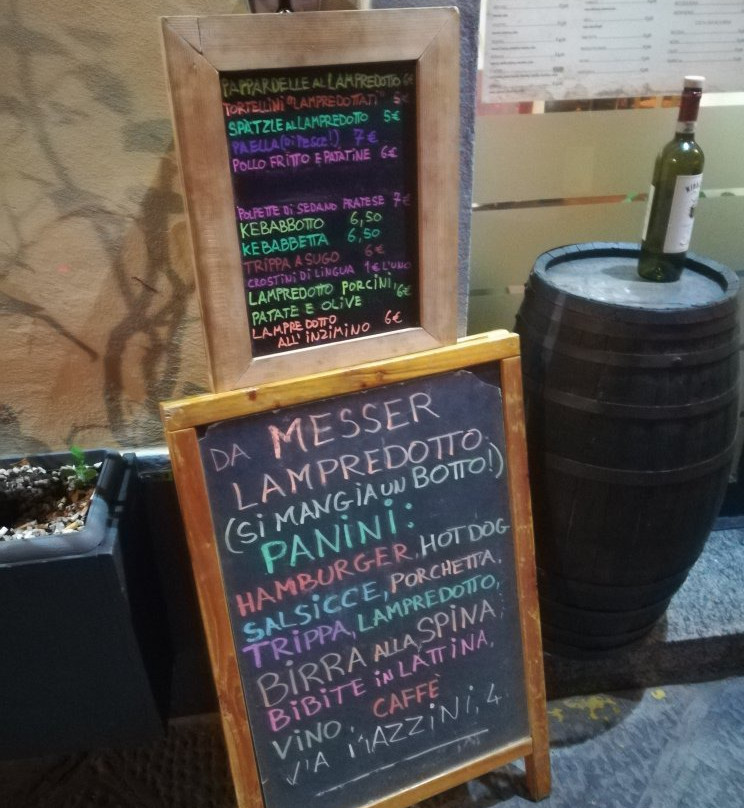 PAPPARDELLE AL LAMPREDOTTO 6€
TORTELLINI "LAMPREDOTTATI" 5€
SPATZLE AL LAMPREDOTTO 5€
PAELLA (Di PESCE!) 7€
POLLO FRITTO E PATATINE 6€
POLPETTE Di SEDANO PRATESE 7€
KEBABBOTTO 6,50
KEBABBETTA 6,50
TRIPPA A SUGO 6€
CROSTINI Di LINGUA 1€ L'UNO
LAMPREDOTTO PORCINI,
PATATE E OLIVE 6€
LAMPREDOTTO
ALL'INZIMINO 6€
DA MESSER
LAMPREDOTTO
(Si MANGiA UN BOTTO!)
PANiNi:
HAMBURGER, HOT DOG
SALSiCCE, PORCHETTA,
TRiPPA, LAMPREDOTTO,
BiRRA ALLA SPiNA
BiBiTE iN LATTiNA,
ViNO, CAFFÈ
ViA MAZZiNi, 4